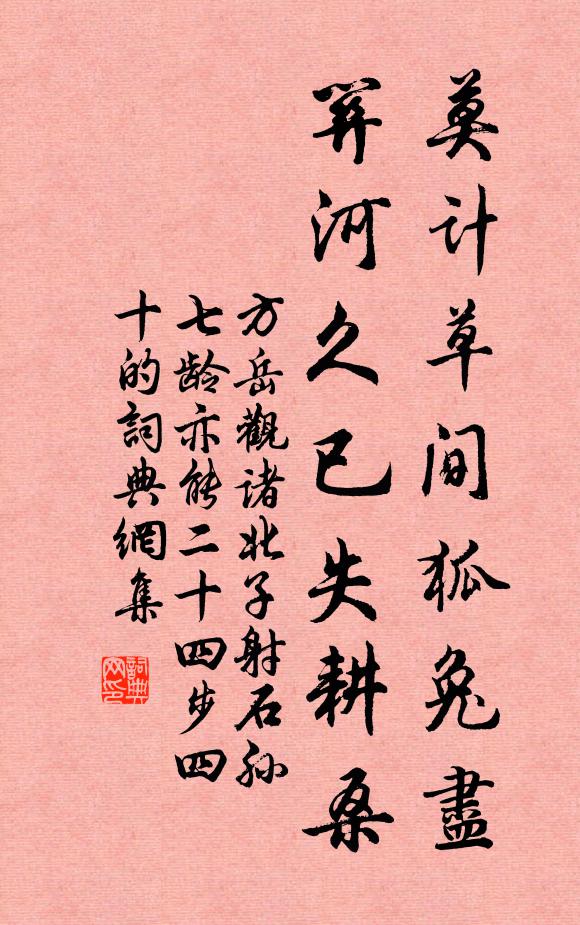 莫计草间狐兔盡
關河久已失耕桑
方岳觀诸北子射石孙
七龄亦能二十四步四
十的詞典網集
詞典网印